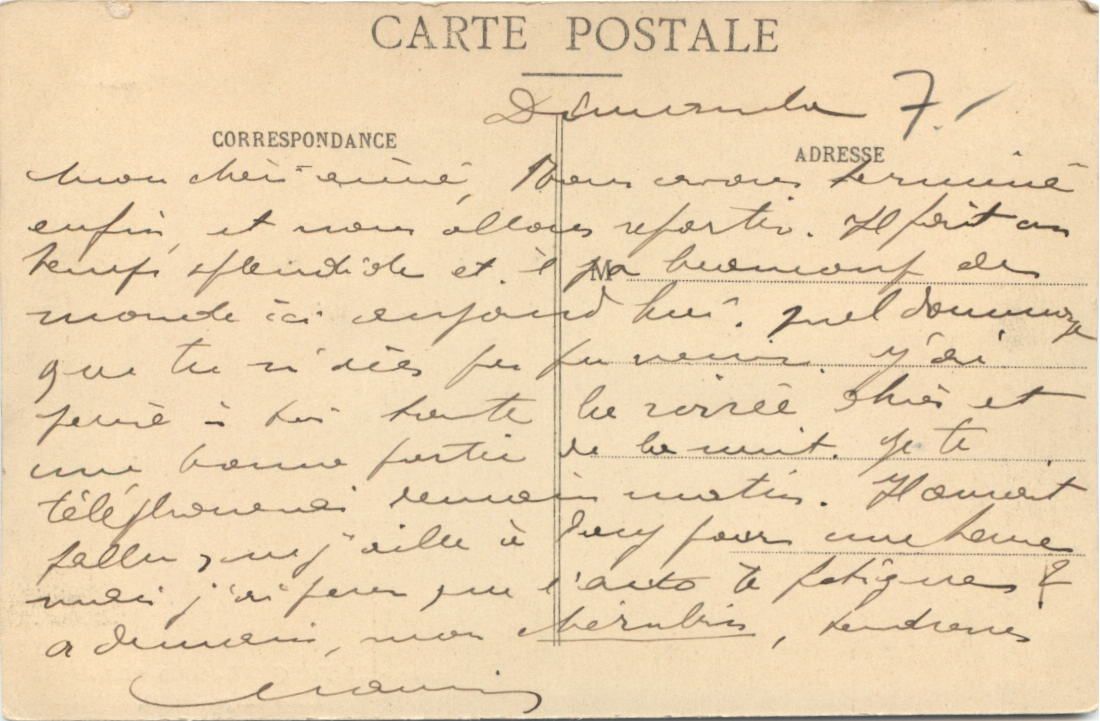 CARTE POSTALE
Dimanche 7.
CORRESPONDANCE
ADRESSE
Mon chéri aimé, Nous avons terminé
enfin, et nous allons repartir. Il fait un
temps splendide et il y a beaucoup de
M
monde ici aujourd'hui. quel dommage
que tu n'aies pas pu venir. J'ai
pensé à toi toute la soirée d'hier et
une bonne partie de la nuit. Je te
téléphonerai demain matin. Il aurait
fallu que j'aille à pour une heure
mais j'ai peur que l'auto te fatigue
a demain, mon chérubin, tendresses